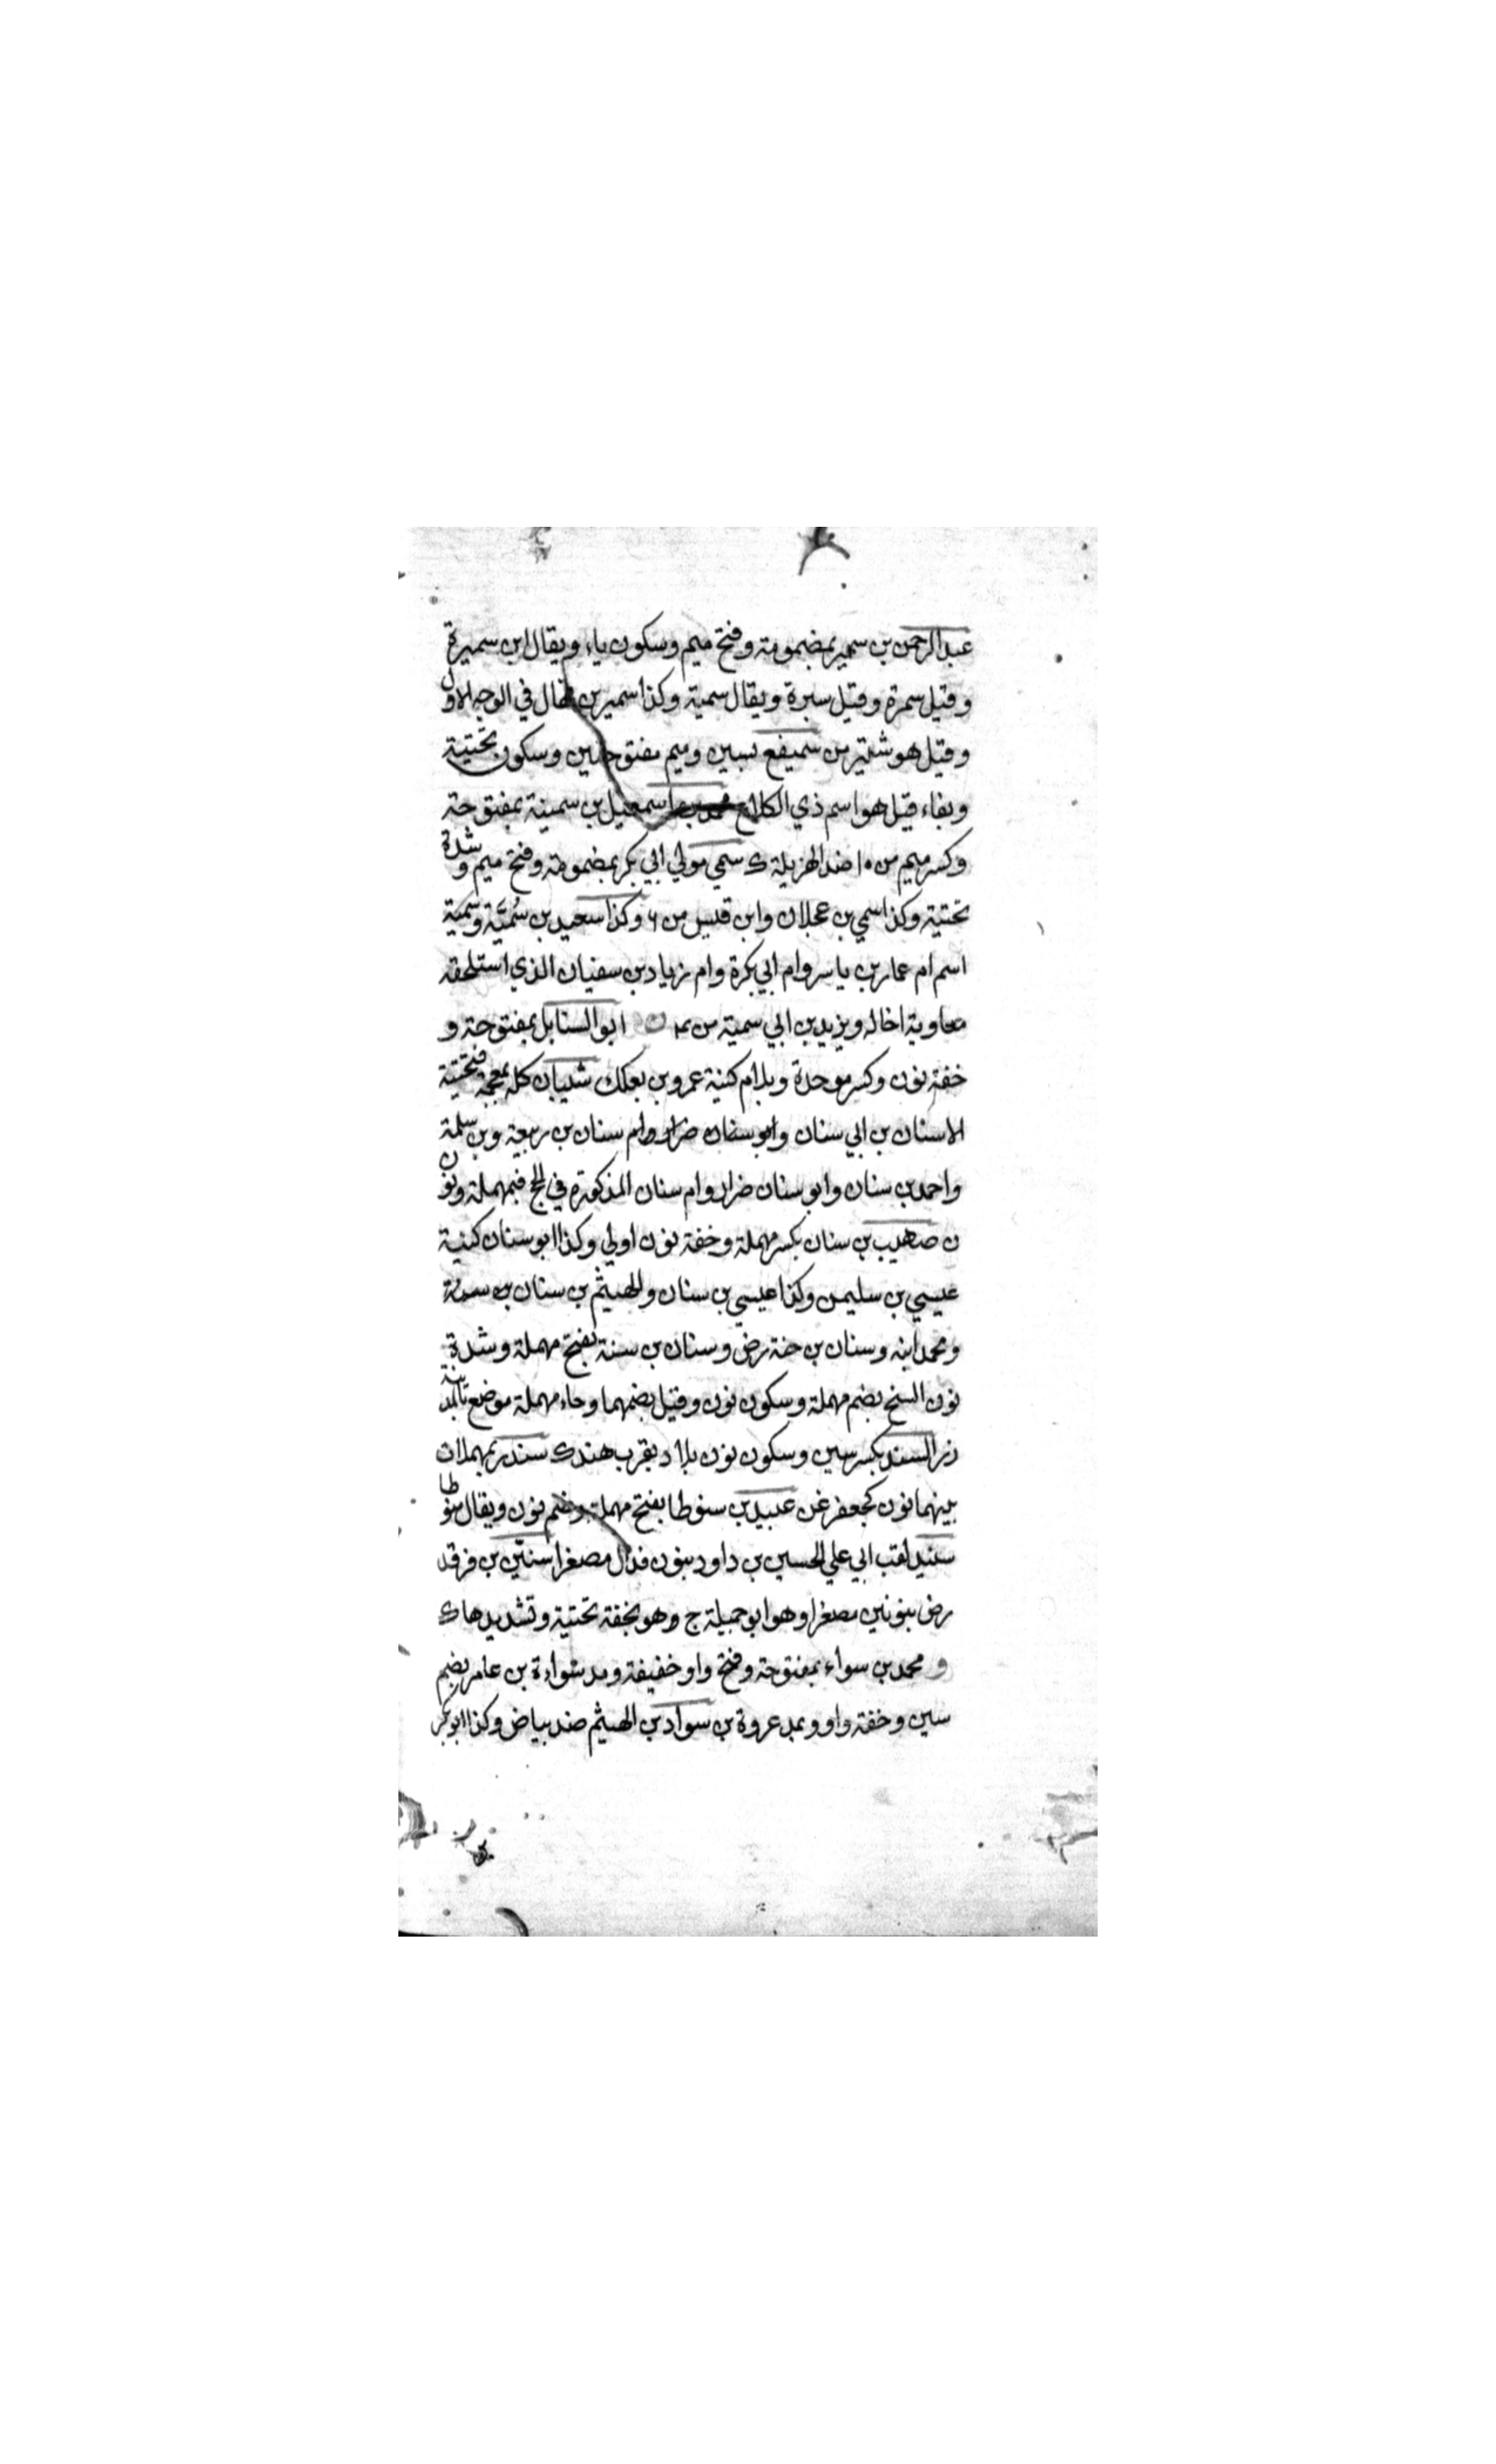 عبد الرحمن بن سمير بمضمومة وفتح ميم وسكون ياء ويقال ابن سميرة
وقيل سمرة وقيل سبرة ويقال سمية وكذا سمير بن في الوجه الاول
وقيل هو شتير من سميفع بسين وميم مفتوحتين وسكون تحتية
وبفاء قيل هو اسم ذي الكلاع اسمعيل بن سمينة بمفتوحة
وكسر ميم من ١٠ ضد الهزيلة ك سمي مولي ابي بكر بمضمومة وفتح ميم وشدة
تحتية وكذا سمي بن عجلان وابن قيس من ٤ وكذا سعيد بن سُميَّة وسمية
اسم ام عمار بن ياسر وام ابي بكرة وام زياد بن سفيان الذي استلحقه
معاوية اخا له ويزيد بن ابي سمية من ابو السنابل بمفتوحة و
خفة نون وكسر موحدة وبلام كنية عمرو بن بعكك شيبان كله بمعجمة فتحتية
الا سنان بن ابي سنان وابو سنان ضرار وام سنان بن ربيعة وبن سلمة
واحمد بن سنان وابو سنان ضرار وام سنان المذكورة في الحج فبمهملة ونون
ن صهيب بن سنان بكسر مهملة وخفة نون اولي وكذا ابو سنان كنية
عيسي بن سليمن وكذا عيسي بن سنان والهيثم بن سنان بن
ومحمد ابنه وسنان بن سنة رض وسنان بن سنة بفتح مهملة وشدة
نون السنح بضم مهملة وسكون نون وقيل بضمهما وحاء مهملة موضع بالمدينة
زر السند بكسر سين وسكون نون بلاد بقرب هند ك سندر بمهملات
بينهما نون كجعفر غن عبيد بن سنوطا بفتح مهملة وضم نون ويقال سنوطا
سنيد لقب ابي علي الحسين بن داود بنون فدال مصغرا سنين بن فرقد
رض بنونين مصغرا وهو ابو جميلة ج وهو بخفة تحتية وتشديدها ك
و محمد بن سواء بمفتوحة وفتح واو خفيفة ومد سوادة بن عامر بضم
سين وخفة واو وبمد عروة بن سواد بن الهيثم ضد بياض وكذا ابو بكر